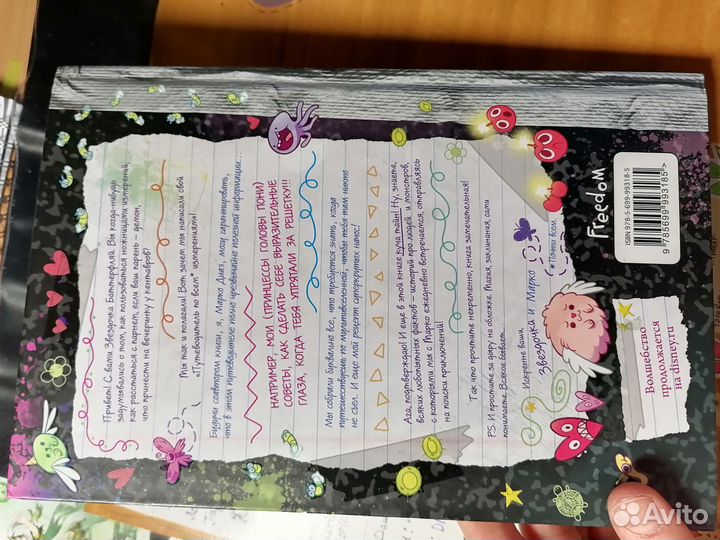 Привет! С вами Звёздочка Баттерфляй. Вы когда-нибудь
задумывались о том, как пользоваться ножницами измерений,
как расстаться с парнем, если ваш парень – демон,
что принести на вечеринку у кентавров?
Мы так и полагали! Вот зачем ты написали свой
«Путеводитель по всем* измерениям»!
Будучи соавтором книги, я, Марко Диаз, могу гарантировать,
что в этом путеводителе полно чрезвычайно полезной информации...
НАПРИМЕР, МОИ (ПРИНЦЕССЫ ГОЛОВЫ ПОНИ)
СОВЕТЫ, КАК СДЕЛАТЬ СЕБЕ ВЫРАЗИТЕЛЬНЫЕ
ГЛАЗА, КОГДА ТЕБЯ УПРЯТАЛИ ЗА РЕШЁТКУ!!!
Мы собрали буквально все, что требуется знать, когда
путешествуешь по мультивселенной, чтобы тебя там никто
не съел. И еще мой рецепт суперкрутых начос!
Ага, подтверждаю! И еще в этой книге куча тайн! Ну, знаете,
всяких любопытных фактов – историй про людей и монстров,
с которыми мы с Марко ежедневно встречаемся, отправляясь
на поиски приключений!
Так что прочтите непременно, книга замечательная!
PS. И простите за дыру на обложке. Магия, заклинания, сами
понимаете. Всякое бывает.
Искренне ваши,
Звёздочка и Марко
*Почти всем.
Freedom
ISBN 978-5-699-99318-5
9 785699 993185 >
Волшебство
продолжается
на disney.ru
Avito